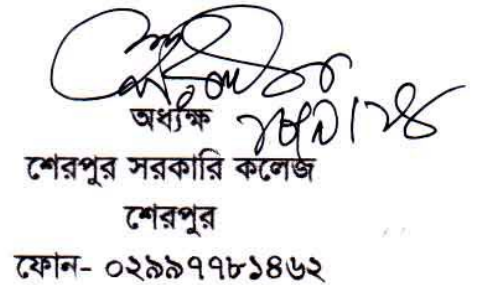 অধ্যক্ষ
শেরপুর সরকারি কলেজ
শেরপুর
ফোন- ০২৯৯৭৭৮১৪৬২